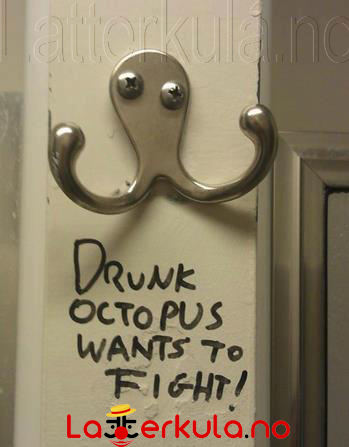 Latterkula.no
DRUNK
OCTOPUS
WANTS TO
FIGHT!
Latterkula.no